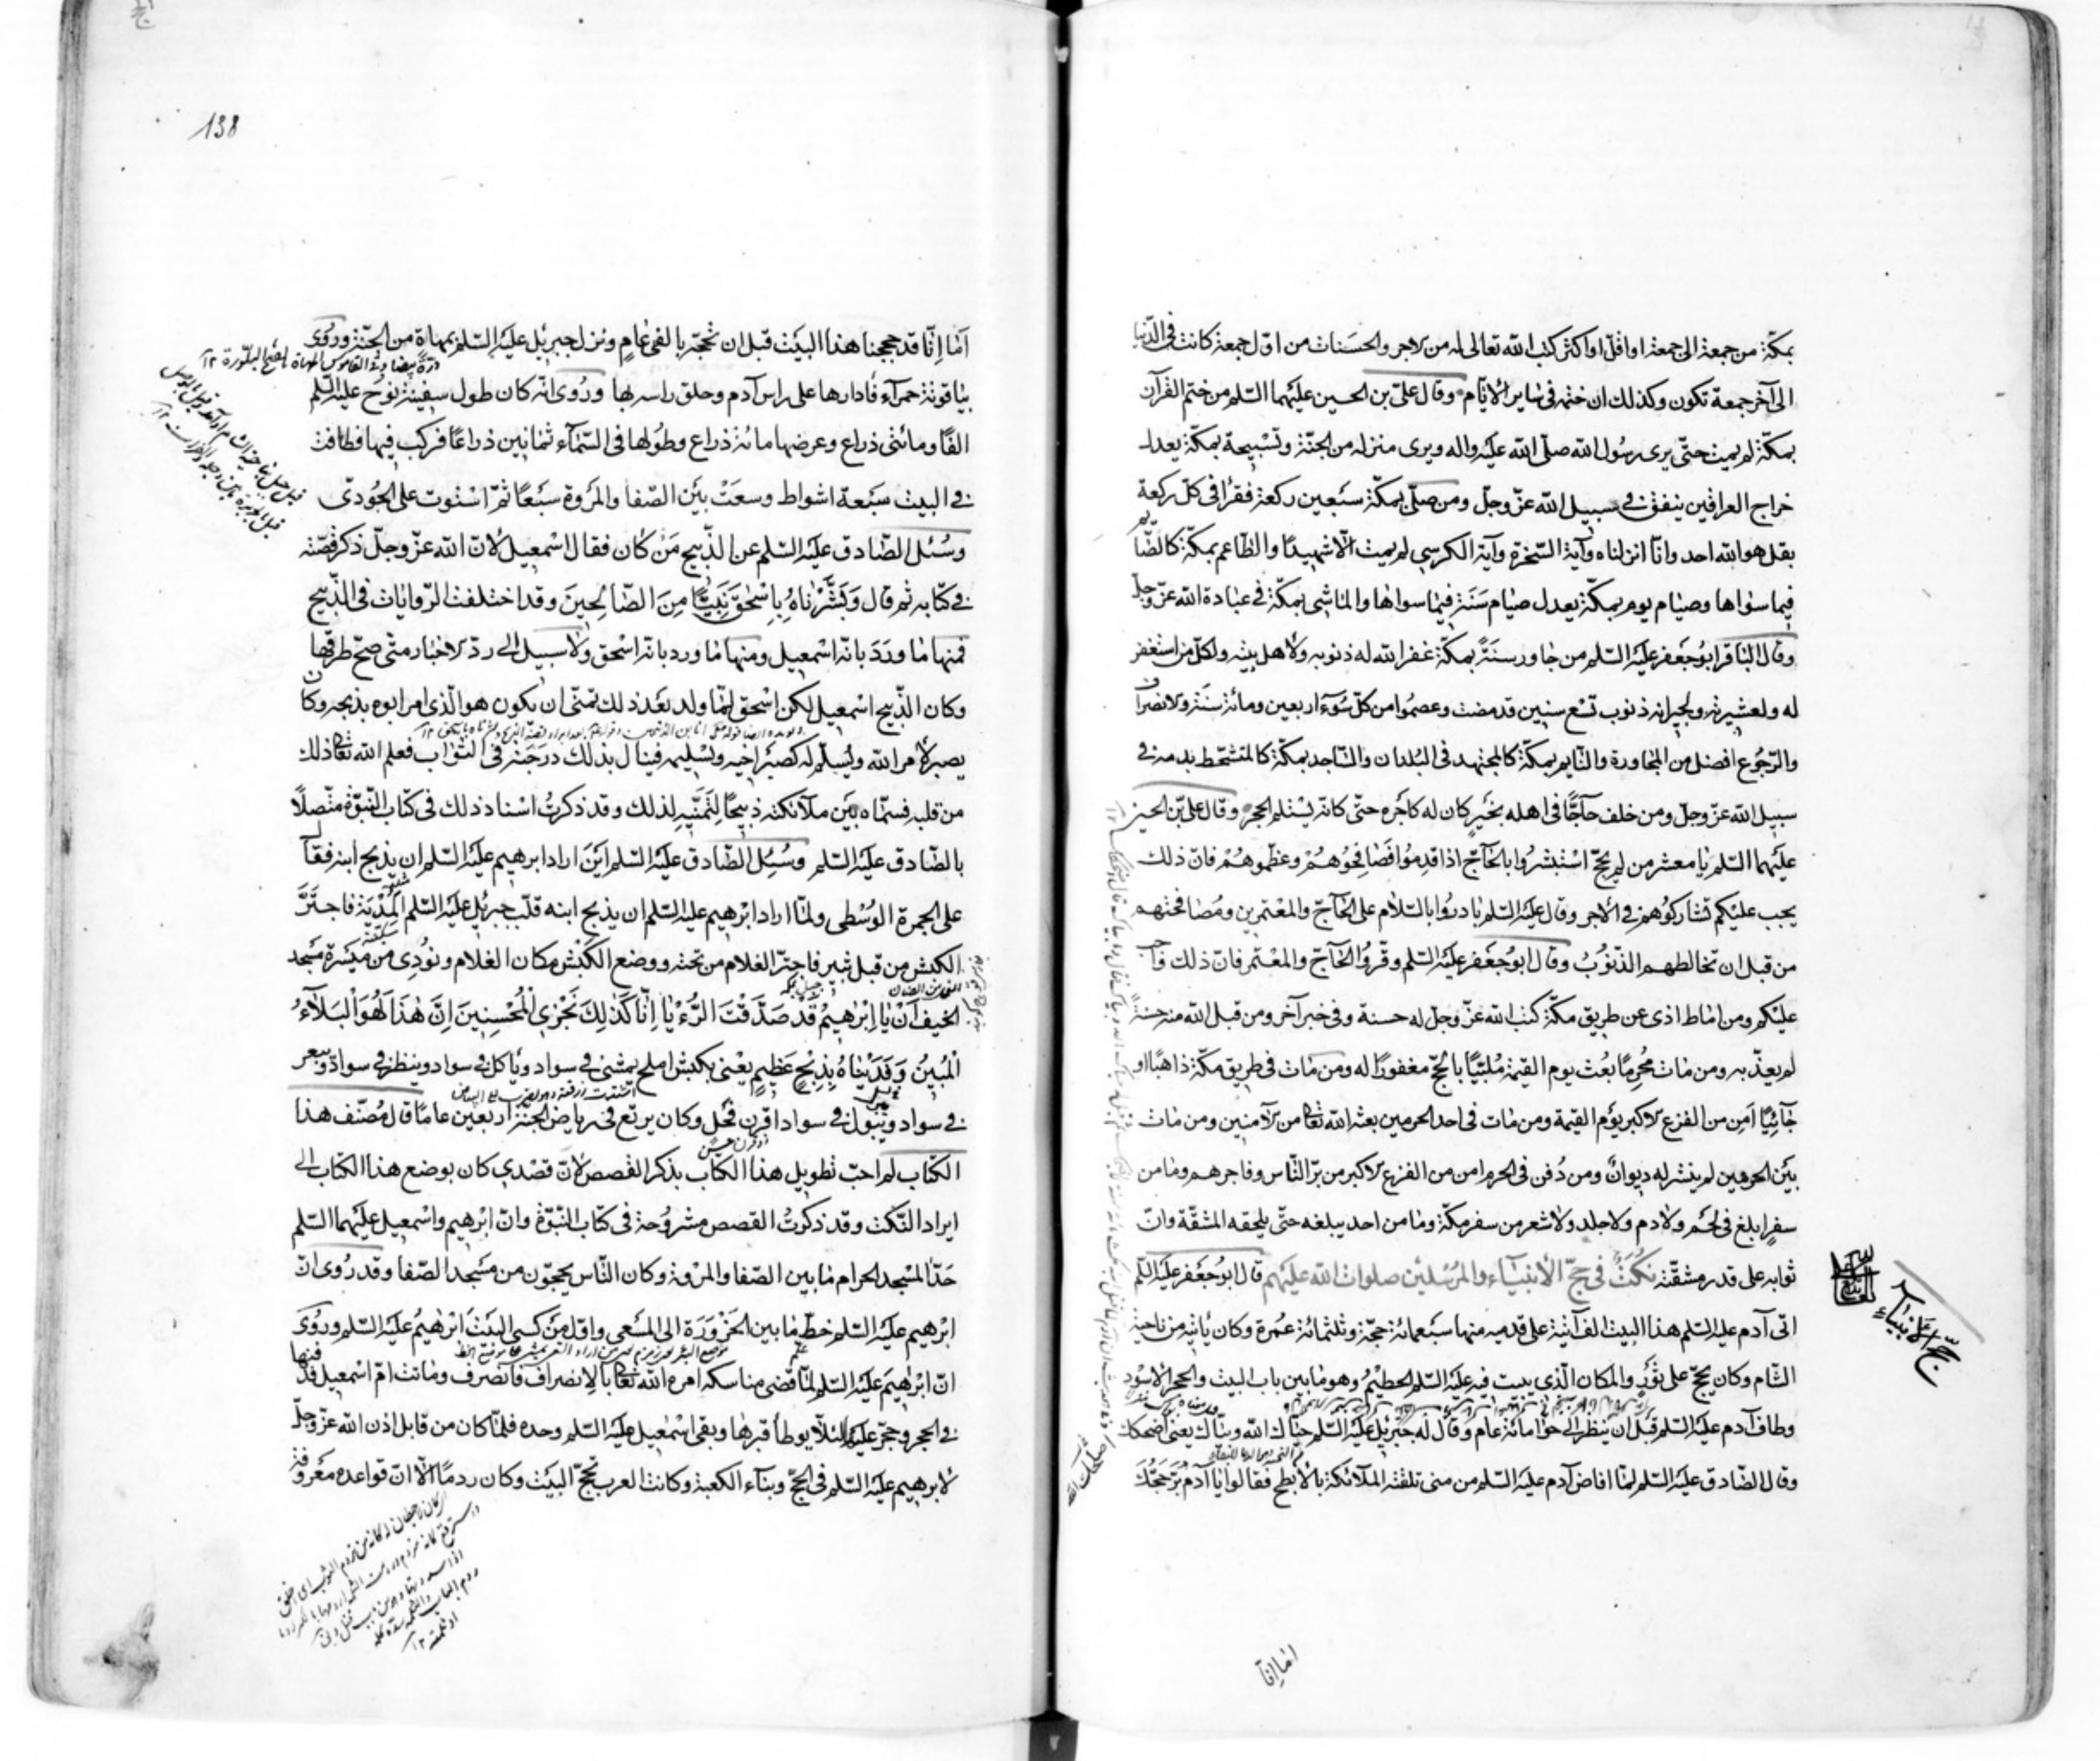 بمكّة من جمعة الى جمعة او اقلّ او اكثر كتب الله تعالى له من الاجر والحسنات من اوّل جمعة كانت فى الدّنيا
الى آخر جمعة تكون وكذلك ان ختمه فى ساير الايّام وقال علىّ بن الحسين عليهما السّلم من ختم القرآن
بمكّة لم يمت حتّى يرى رسُول الله صلّى الله عليه واله ويرى منزله من الجنّة وتسْبيحة بمكّة يعدل
خراج العراقين ينفق فى سبيل الله عزّ وجلّ ومن صلّى بمكّة سبعين ركعة فقرأ فى كلّ ركعة
بقل هو الله احد وانّا انزلناه وآية السّخرة وآية الكرسي لم يمت الّا شهيدًا والطّاعم بمكّة كالصّايم
فيما سواها وصيام يوم بمكّة يعدل صيام سَنَة فيما سواها والماشى بمكّة فى عبادة الله عزّ وجلّ
وقال الباقر ابوُ جَعفر عليه السّلم من جاور سنَةً بمكّة غفر الله له ذنوبه ولاهل بيته ولكلّ من استغفر
له ولعشيرته ولجيرانه ذنوب تسْع سنين قد مضت وعصمُوا من كلّ سُوء اربعين ومائة سَنَة والانصراف
والرّجُوع افضل من المجاورة والنّايم بمكّة كالمجتهد فى البُلدان والسّاجد بمكّة كالمتشحّط بدمه فى
سبيل الله عزّ وجلّ ومن خلف حاجًّا فى اهله بخَيرٍ كان له كاجْره حتّى كانّه يسْتلم الحجر وقال علىّ بن الحسين
عليهما السّلم يا معشر من لم يحجّ استبشرُوا بالحَآجّ اذا قدِمُوا فصَافِحُوُهُمْ وعظّموهُمْ فانّ ذلك
يجب عليكم تشاركوُهم فى الاجر وقال عليه السّلم بادرُوا بالسّلام على الحَآجّ والمعْتمرين ومُصَافحتهم
من قبل ان تخالطهم الذّنوُبُ وقال ابوُ جَعْفر عليه السّلم وقّروُا الحَآجّ والمعْتمر فانّ ذلك واجب
عليكم ومن اماط اذى عن طريق مكّة كتب الله عزّ وجلّ له حسنة وفى خبر آخر ومن قبل الله منه حسنةً
لم يعذّبه ومن مات مُحْرِمًا بعُث يوم القيٰمة مُلبّيًا بالحّجّ مغفورًا له ومن مات فى طريق مكّة ذاهبًا او
جَآئيًا اَمِن من الفزع الاكبر يوْم القيمة ومن مات فى احد الحرمين بعثه الله تعَا من الآمنين ومن مات
بيْن الحرمين لم ينشر له ديوانٌ ومن دُفن فى الحرم امن من الفزع الاكبر من برّ النّاس وفاجرهم وما من
سفرٍ ابلغ فى لحَم ولا دم ولا جلد ولا شعر من سفر مكّة وما من احد يبلغه حتّى يلحقه المشقّة وانّ
ثوابه على قدر مشقّته نكتٌ فى حجّ الأنبيَآء والمرُسَلين صلوات الله عليهم قال ابوُ جَعْفر عليه السّلم
اتى آدم عليه السّلم هذا البيت الف آتية على قدميه منها سبعمائة حجّة وثلثمائة عمُرة وكان يأتيه من ناحية
الشّام وكان يحجّ على ثوْرٍ والمكان الّذى يبيت فيه عليه السّلم الحطيمُ وهو ما بين باب البيت والحجر الاسْود
وطاف آدم عليه السّلم قبل ان ينظر الى حوّا مائة عام وقال له جبْرئيل عليه السّلم حيّاك الله وبيّاك يعنى اضحكك
وقال الصّادق عليه السّلم لمّا افاض آدم عليه السّلم من منى تلقته الملآئكة بالابطح فقالوا يا آدم بُرّ حجّكَ
حجّ الانبياء
اضحكك الله
اما انّا
138
اَمَا اِنّا قد حججنا هذا البيت قبل ان تحجّه بالفى عامٍ ونزل جبرئيل عليه السّلم بمهاة من الجنّة وروُى
بياقوتة حمرآء فادارها على راس آدم وحلق راسه بها وروُى انّه كان طول سفينة نوح عليه السّلم
الفًا ومائتى ذراع وعرضها مائة ذراع وطوُلها فى السّمآء ثمانين ذراعًا فركب فيها فطافت
فى البيت سبَعة اشواط وسعَتْ بيْن الصّفا والمرْوة سبعًا ثمّ اسْتوت على الجوُدىّ
وسُئل الصّادق عليه السّلم عن الذّبيح مَنْ كان فقال اسْمعيل لانّ الله عزّ وجلّ ذكر قصّته
فى كتابه ثم قال وَبَشَّرْناهُ بِاِسْحٰقَ نَبِيًّا مِنَ الصّالِحينَ وقد اختلفت الرّوايات فى الذّبيح
فمنها ما ورَدَ بانّه اسْمعيل ومنها ما ورد بانّه اسْحق ولا سبيل الى ردّ الاخبار متى صحّ طرقها
وكان الذّبيح اسْمعيل لكن اسْحق لمّا ولد بعْد ذلك تمنّى ان يكون هو الّذى امر ابوه بذبحه وكان
يصبر لأمر الله ويُسلّم له كصبْر اخيه وتسْليمه فينال بذلك درَجَته فى الثوّاب فعلم الله تعَا ذلك
من قلبه فسمّاه بيْن ملآئكته ذبيحًا لِتمنّيه لذلك وقد ذكرتُ اسْناد ذلك فى كتاب النّبوّة متّصلًا
بالصّادق عليه السّلم وسُئِل الصّادق عليه السّلم ايْنَ اراد ابرهيم عليه السّلم ان يذبح ابنه فقال
على الجمرة الوُسْطى ولمّا اراد ابْرهيم عليه السّلم ان يذبح ابنه قلّب جبرئيل عليه السّلم المُدْيَةَ فاجترّ
الكبش من قبل ثبير فاجترّ الغلام من تحته ووضع الكبْش مكان الغلام ونوُدِى من ميْسَرة مسْجد
الخيف اَنْ يا اِبْرٰهيمُ قَدْ صَدَّقْتَ الرُّءْيٰا اِنّا كَذٰلِكَ نَجْزِى الْمُحْسِنينَ اِنَّ هٰذَا لَهُوَ الْبَلآءُ
الْمُبينُ وَفَدَيْناهُ بِذِبْحٍ عَظيمٍ يعْنى بكبش املح يمْشى فى سواد ويأكل فى سواد وينظر فى سواد ويبعر
فى سواد ويَبوُل فى سواد اقرن فحْل وكان يرتع فى رياض الجنّة اربعين عامًا قال مُصنّف هذا
الكتاب لم احبّ تطويل هذا الكتاب بذكر القصص لانّ قصْدى كان بوضع هذا الكتاب الى
ايراد النّكت وقد ذكرتُ القصص مشروُحة فى كتاب النّبوّة وانّ ابْرهيم واسْمعيل عليهما السّلم
حَدّا المسْجد الحرام ما بين الصّفا والمرْوة وكان النّاس يحجّون من مسْجد الصّفا وقد روُى انّ
ابْرهيم عليه السّلم خطّ ما بين الحَزْوَرَة الى المسْعى واوّل مَنْ كسى البيْتَ ابْرٰهيمُ عليه السّلم وروُىَ
انّ ابْرٰهيمَ عليه السّلم لمّا قضى مناسكه امره الله تعَا بالاِنصراف فانصرف وماتت امّ اسْمعيل فدفنها
فى الحجر وحجّر عليها لئلّا يوطأ قبرها وبقى اسْمٰعيل عليه السّلم وحده فلمّا كان من قابل اذن الله عزّ وجلّ
لابرهيم عليه السّلم فى الحّجّ وبنآء الكعبة وكانت العرب تحجّ البيْت وكان ردمًا الّا انّ قواعده معْروفة